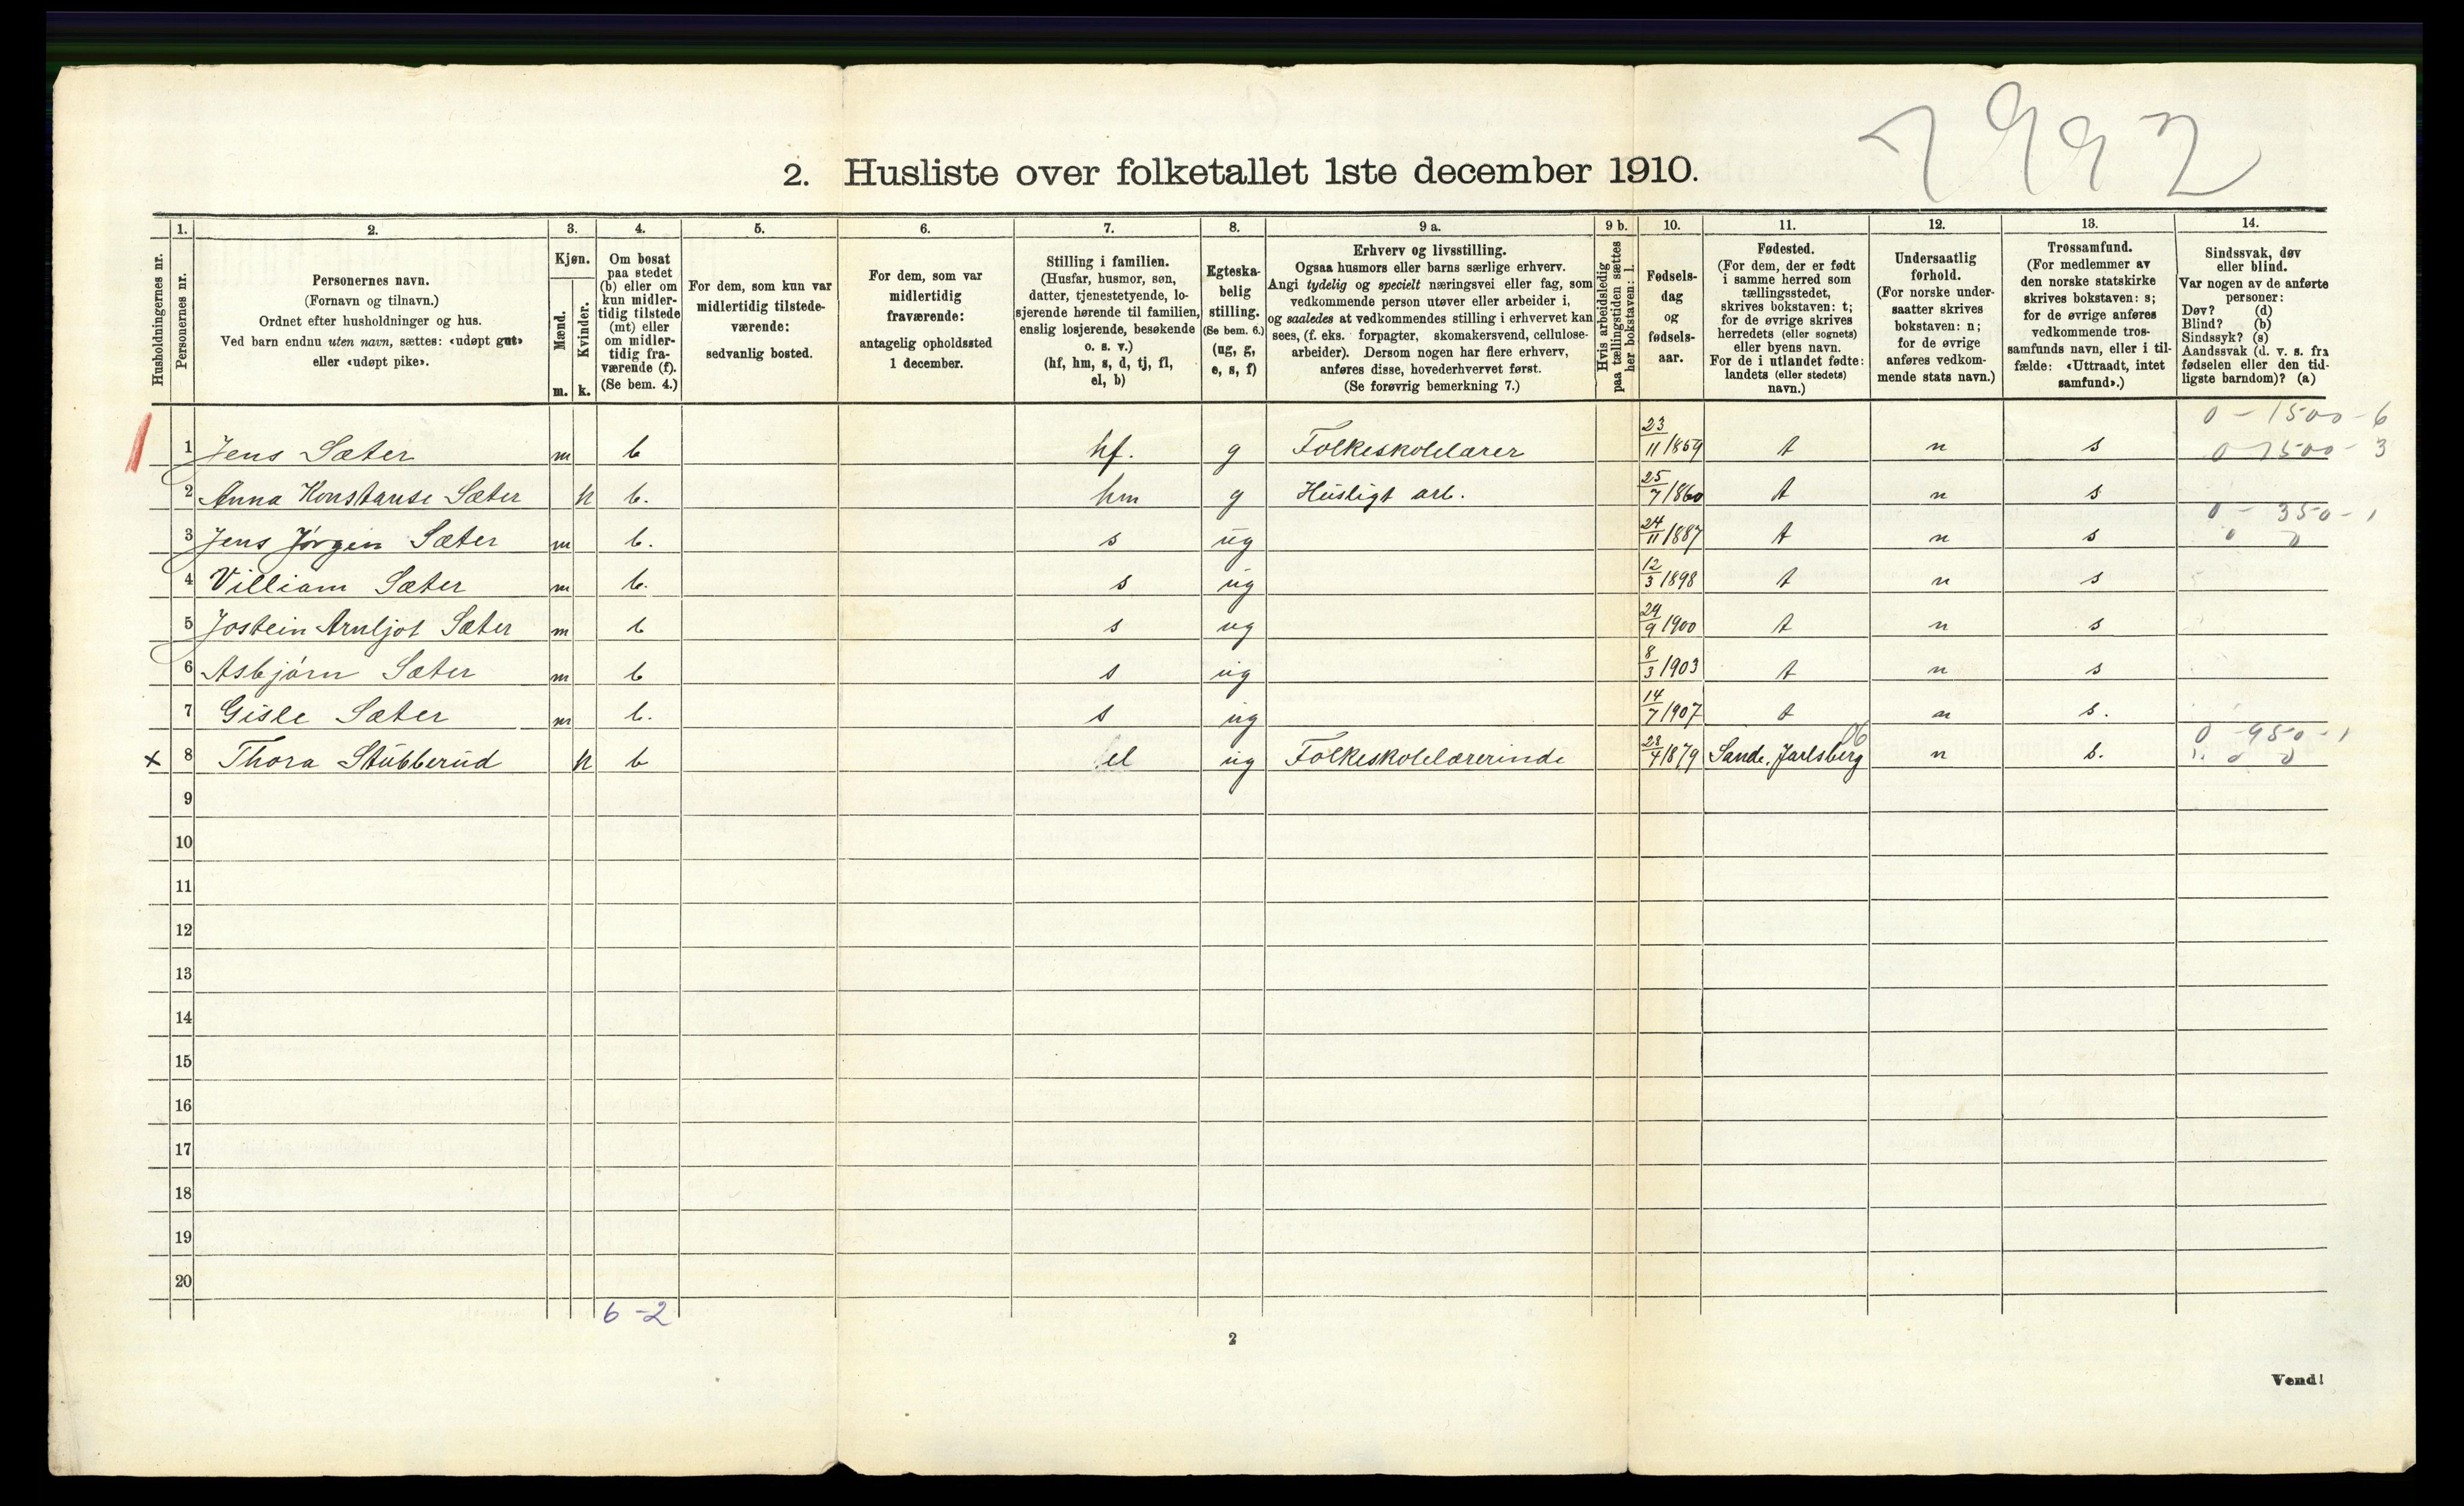 7992
2. Husliste over folketallet 1ste december 1910.
Husholdningernes nr.
1. Personernes nr.
2. Personernes navn.
(Fornavn og tilnavn.)
Ordnet efter husholdninger og hus.
Ved barn endnu uten navn, sættes: «udøpt gut»
eller «udøpt pike».
3. Kjøn.
Mænd. m.
Kvinder. k.
4. Om bosat
paa stedet
(b) eller om
kun midler-
tidig tilstede
(mt) eller
om midler-
tidig fra-
værende (f).
(Se bem. 4.)
5. For dem, som kun var
midlertidig tilstede-
værende:
sedvanlig bosted.
6. For dem, som var
midlertidig
fraværende:
antagelig opholdssted
1 december.
7. Stilling i familien.
(Husfar, husmor, søn,
datter, tjenestetyende, lo-
sjerende hørende til familien,
enslig losjerende, besøkende
o. s. v.)
(hf, hm, s, d, tj, fl,
el, b)
8. Egteska-
belig
stilling.
(Se bem. 6.)
(ug, g,
e, s, f)
9 a. Erhverv og livsstilling.
Ogsaa husmors eller barns særlige erhverv.
Angi tydelig og specielt næringsvei eller fag, som
vedkommende person utøver eller arbeider i,
og saaledes at vedkommendes stilling i erhvervet kan
sees, (f. eks. forpagter, skomakersvend, cellulose-
arbeider). Dersom nogen har flere erhverv,
anføres disse, hovederhvervet først.
(Se forøvrig bemerkning 7.)
9 b. Hvis arbeidsledig
paa tællingstiden sættes
her bokstaven: l.
10. Fødsels-
dag
og
fødsels-
aar.
11. Fødested.
(For dem, der er født
i samme herred som
tællingsstedet,
skrives bokstaven: t;
for de øvrige skrives
herredets (eller sognets)
eller byens navn.
For de i utlandet fødte:
landets (eller stedets)
navn.)
12. Undersaatlig
forhold.
(For norske under-
saatter skrives
bokstaven: n;
for de øvrige
anføres vedkom-
mende stats navn.)
13. Trossamfund.
(For medlemmer av
den norske statskirke
skrives bokstaven: s;
for de øvrige anføres
vedkommende tros-
samfunds navn, eller i til-
fælde: «Uttraadt, intet
samfund».)
14. Sindssvak, døv
eller blind.
Var nogen av de anførte
personer:
Døv? (d)
Blind? (b)
Sindssyk? (s)
Aandssvak (d. v. s. fra
fødselen eller den tid-
ligste barndom)? (a)
0 - 1500 - 6
1 Jens Sæter m b hf. g Folkeskolelærer 23/11 1859 t n s 0 1500 - 3
2 Anna Konstanse Sæter k b. hm g Husligt arb. 25/7 1860 t n s
0 - 350 - 1
3 Jens Jørgen Sæter m b. s ug 24/11 1887 t n s 0 0
4 Villiam Sæter m b. s ug 12/3 1898 t n s
5 Jostein Arnljot Sæter m b s ug 29/9 1900 t n s
6 Asbjørn Sæter m b s ug 8/3 1903 t n s
7 Gisle Sæter m b. s ug 14/7 1907 t n s.
06 0 - 950 - 1
x 8 Thora Stubberud k b el ug Folkeskolelærerinde 28/4 1879 Sande, Jarlsberg n s.
9
10
11
12
13
14
15
16
17
18
19
20
6 - 2
2
Vend!